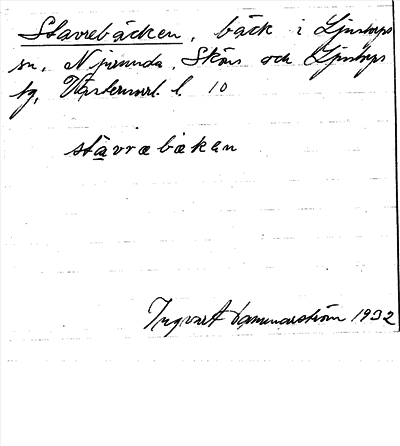 Stavrebäcken, bäck i Ljustorps
sn, Njurunda, Sköns och Ljustorps
tg, Västernorrl. l. 10
stavræbækan
Ingvart Hammarström 1932